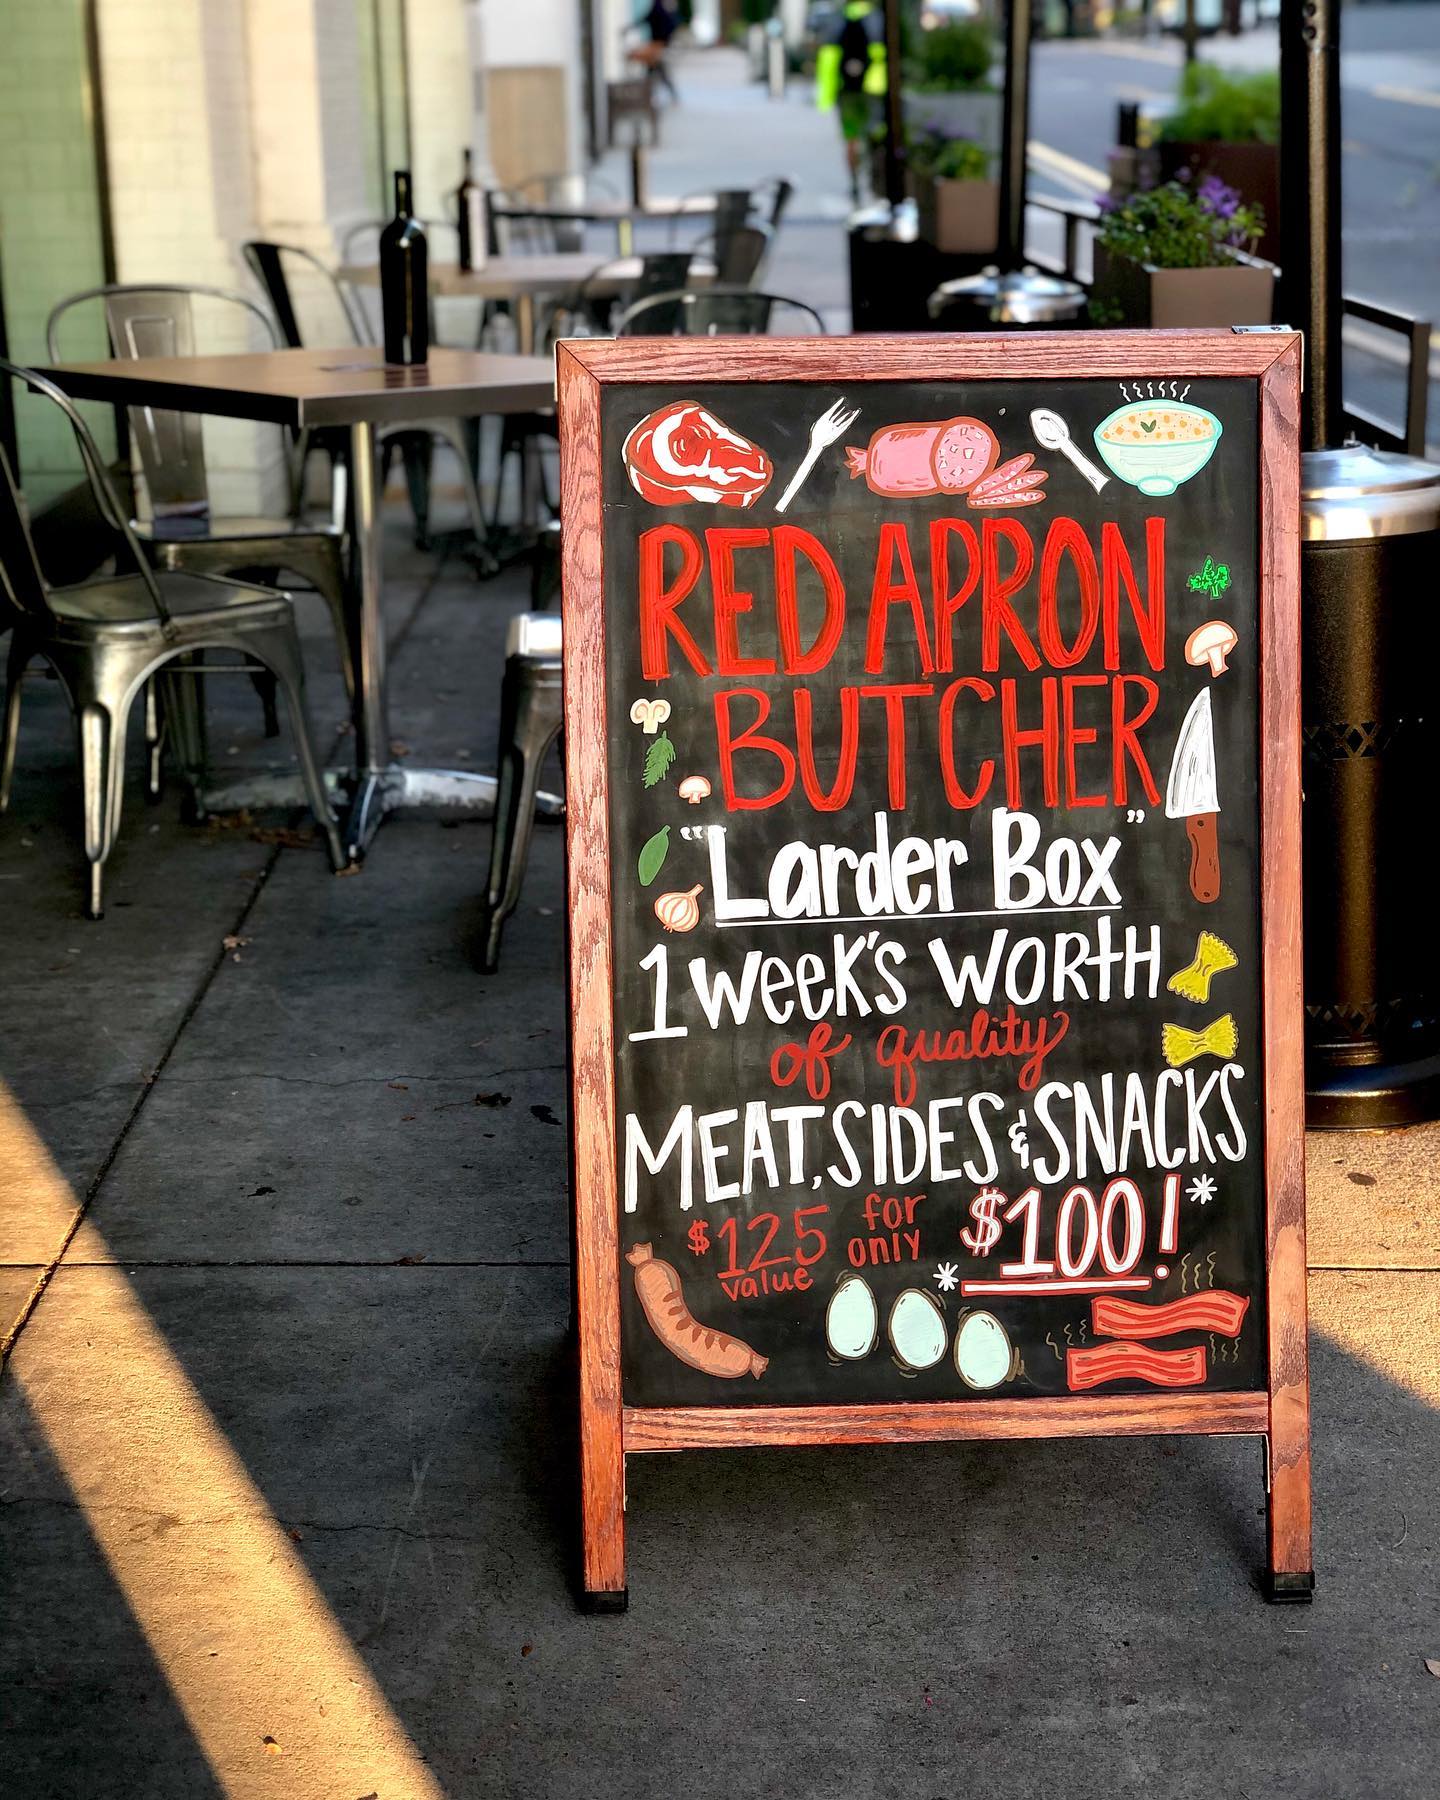 RED APRON
BUTCHER
"Larder Box"
1 week's WORTH
of quality
MEAT, SIDES & SNACKS
$125 for only $100!*
value *